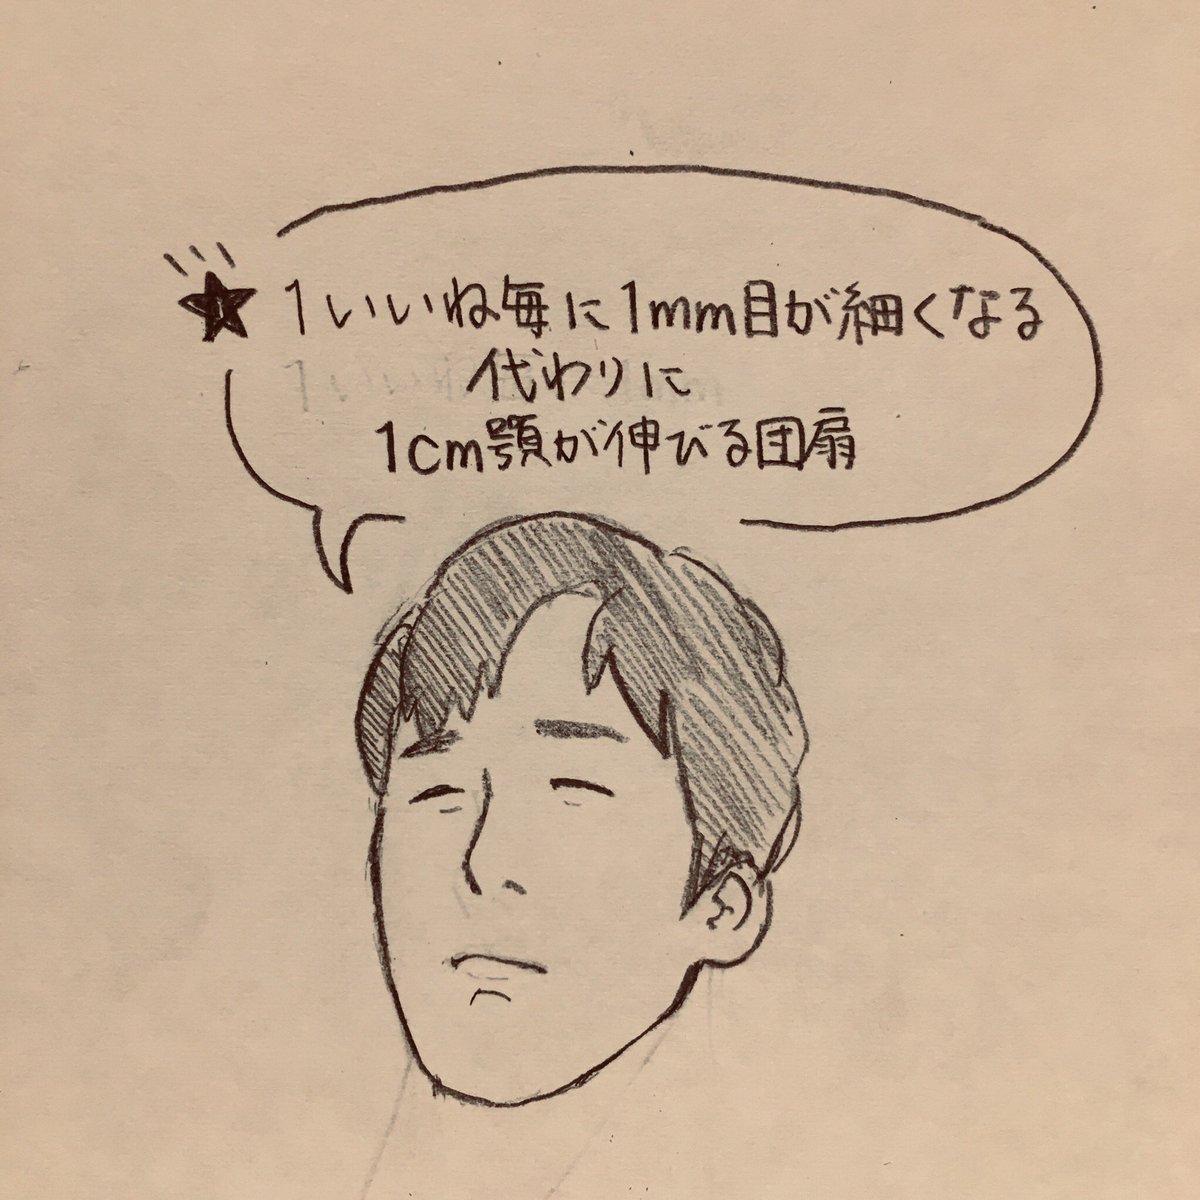 ★1いいね毎に1mm目が細くなる
代わりに
1cm顎が伸びる団扇